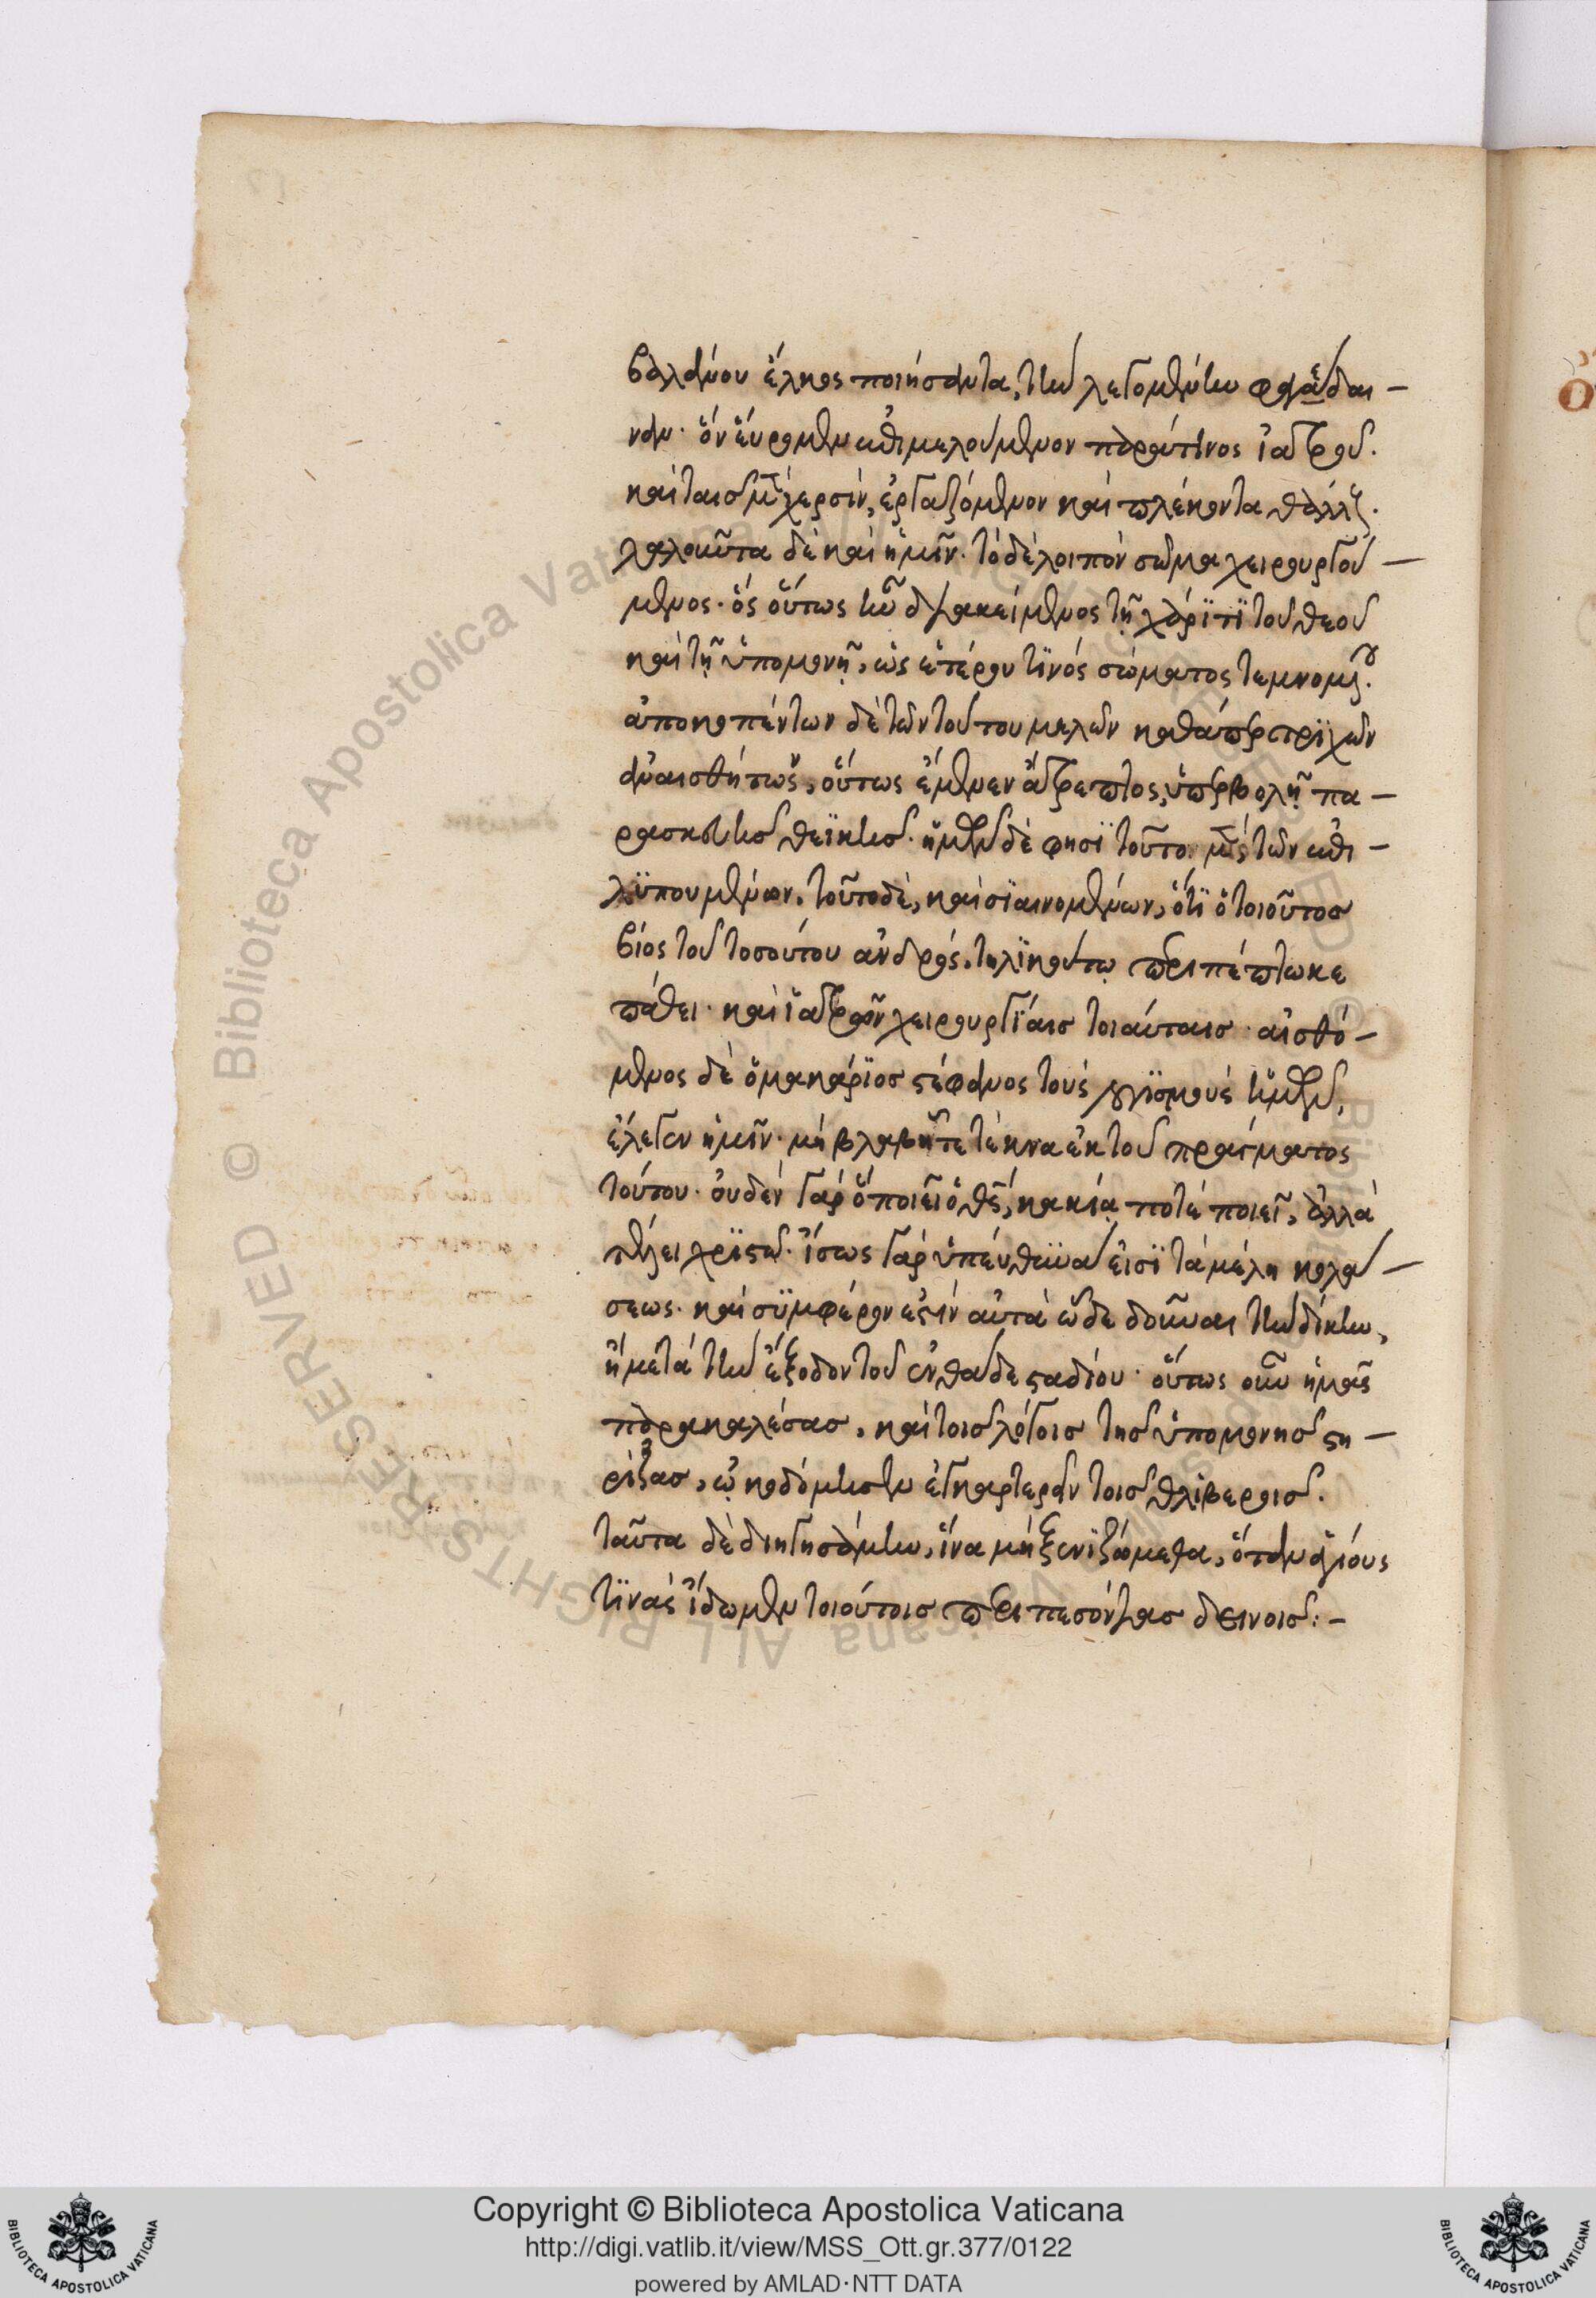 βαλάνου ἕλκος ποιήσαντα, τὴν λεγομένην φαγέδαι -
ναν· ὃν εὕρομεν ἐπιμελούμενον παρά τινος ἰατροῦ·
καὶ ταῖς μὲν χερσὶν, ἐργαζόμενον καὶ πλέκοντα θαλλ
λαλοῦντα δὲ καὶ ἡμῖν· τὸ δὲ λοιπὸν σῶμα χειρουργού -
μενος· ὃς οὕτως ἦν διακείμενος τῇ χάριτι τοῦ θεοῦ
καὶ τῇ ὑπομονῇ, ὡς ἑτέρου τινός σώματος τεμνομέ
ἀποκοπέντων δὲ τῶν τούτου μελῶν καθάπερ τριχῶν
ἀναισθήτως, οὕτως ἔμενεν ἄτρεπτος, ὑπερβολῇ πα -
ρασκευῆς θεϊκῆς. ἡμῶν δέ φησι τοῦτο μὲν τῶν ἐπι -
λυπουμένων, τοῦτο δὲ, καὶ σιαινομένων, ὅτι ὁ τοιοῦτος
βίος τοῦ τοσούτου ἀνδρός, τηλικούτῳ περιπέπτωκε
πάθει· καὶ ἰατρῶν χειρουργίαις τοιαύταις· αἰσθό -
μενος δὲ ὁ μακάριος στέφανος τοὺς λογισμοὺς ἡμῶν,
ἔλεγεν ἡμῖν· μὴ βλαβῆτε τέκνα ἐκ τοῦ πράγματος
τούτου· οὐδὲν γὰρ ὃ ποιεῖ ὁ θς, κακίᾳ ποτὲ ποιεῖ, ἀλλὰ
τέλει χρηστῷ· ἴσως γὰρ ὑπεύθυνα εἰσὶ τὰ μέλη κολά -
σεως· καὶ συμφέρον ἐστὶν αὐτὰ ὧδε δοῦναι τὴν δίκην,
ἢ μετὰ τὴν ἔξοδον τοῦ ἐνθάδε σταδίου· οὕτως οὖν ἡμᾶς
παρακαλέσας, καὶ τοῖς λόγοις τῆς ὑπομονῆς στη -
ρίξας, ᾠκοδόμησεν ἐγκαρτερεῖν τοῖς θλιβεροῖς.
ταῦτα δὲ διηγησάμην, ἵνα μὴ ξενιζώμεθα, ὅταν ἁγίους
τινὰς ἴδωμεν τοιούτοις περιπεσόντας δεινοῖς:-
Copyright © Biblioteca Apostolica Vaticana
http://digi.vatlib.it/view/MSS_Ott.gr.377/0122
powered by AMLAD·NTT DATA